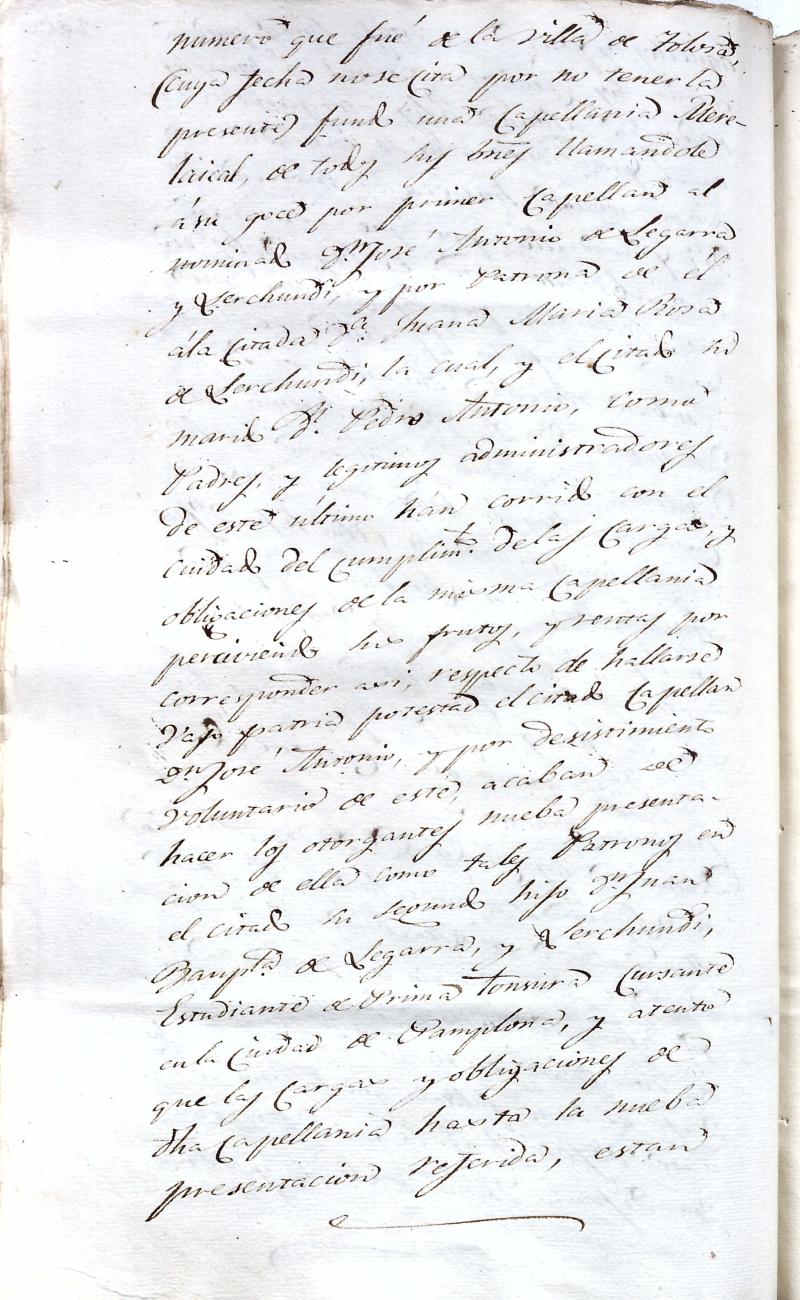 numero que fué de la villa de Tolosa,
(cuya fecha no se cita por no tener la
presente) fundó una Capellania Mere-
laical, de todos sus bnes llamandole
á su goce por primer Capellan al
nominado Dn José Antonio de Legarra
y Lerchundi, y por Patrona de él
á la citada Da Juana Maria Rosa
de Lerchundi, la cual, y el citado su
marido Dn. Pedro Antonio, como
Padres, y legitimos administradores
de este último hán corrido con el
cuidado del cumplimto. de las Cargas, y
obligaciones de la misma Capellania
perciviendo sus frutos, y rentas por
corresponder asi, respecto de hallarse
vajo patria potestad el citado Capellan
Dn José Antonio, y por desistimiento
voluntario de este, acaban de
hacer los otorgantes nueba presenta-
cion de ella como tales Patronos en
el citado su segundo hijo Dn Juan
Baupta de Legarra, y Lerchundi,
Estudiante de Prima Tonsura Cursante
en la Ciudad de Pamplona, y atento
que las Cargas y obligaciones de
dha Capellania hasta la nueba
presentacion referida, estan